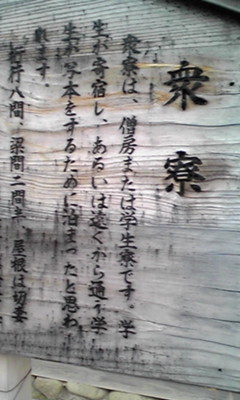 衆寮
衆寮は、僧房または学生寮です。学
生が寄宿し、あるいは遠くから通う学
生が写本をするために泊まったと思わ
れます。
桁行八間、梁間二間半、屋根は切妻